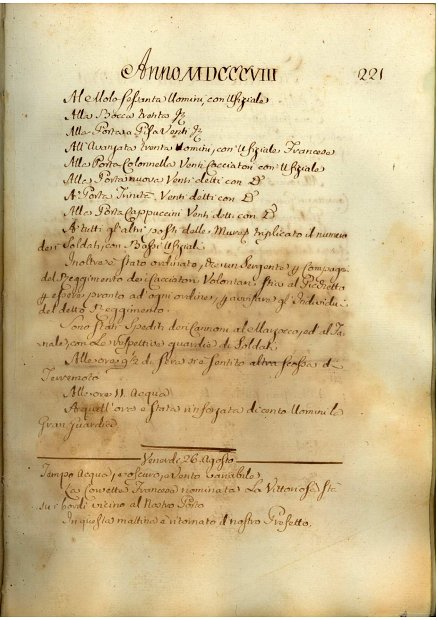 Anno MDCCCVIII 221
Al Molo Sessanta Uomini, con Ufiziale
Alla Bocca trenta
Alla Porta a Pisa Venti
All'Avanzata trenta Uomini, con Ufiziale Francese
Alla Porta Colonnella Venti Cacciatori con Ufiziale
Alla Porta nuova Venti detti con D.
A Porta Trinità Venti detti con D.
Alla Porta Cappuccini Venti detti con D.
A tutti gl'altri posti delle Mura triplicato il numero
dei Soldati, con Bassi Ufiziali.
Inoltre è stato ordinato, che un Sergente p. Compagnia
del Reggimento dei Cacciatori Volontari stia al Picchetto
p. essere pronto ad ogni ordine, p. avvisare gl'Individui
del detto Reggimento.
Sono stati Spediti dei Cannoni al Marzocco, ed al Fa-
nale, con le respettive guardie di Soldati.
Alle ore 9½ di sera si è sentito altra scossa di
Terremoto
Alle ore 11 Acqua
A quell'ore è stata rinforzata di cento Uomini la
Gran Guardia
Venerdì 26 Agosto
Tempo Acqua, e oscuro, e Vento variabile
La Corvetta Francese nominata La Vittoriosa stà
su i bordi vicino al Nostro Porto
In questa mattina è ritornato il nostro Prefetto.